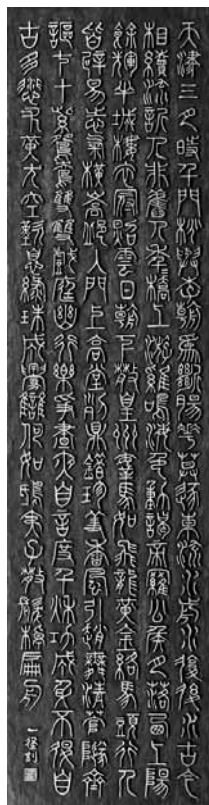 天津三月時千門桃與李朝為斷腸花暮逐東流水前水復後水古今
相續流新人非舊人年年橋上游雞鳴海色動謁帝羅公侯月落西上陽
餘輝半城樓衣冠照雲日朝下散皇州鞍馬如飛龍黃金絡馬頭行人
皆辟易志氣橫嵩丘入門上高堂列鼎錯珍羞香風引趙舞清管隨齊
謳七十紫鴛鴦雙雙戲庭幽行樂爭晝夜自言度千秋功成身不退自
古多愆尤黃犬空歎息綠珠成釁讎何如鴟夷子散髮棹扁舟